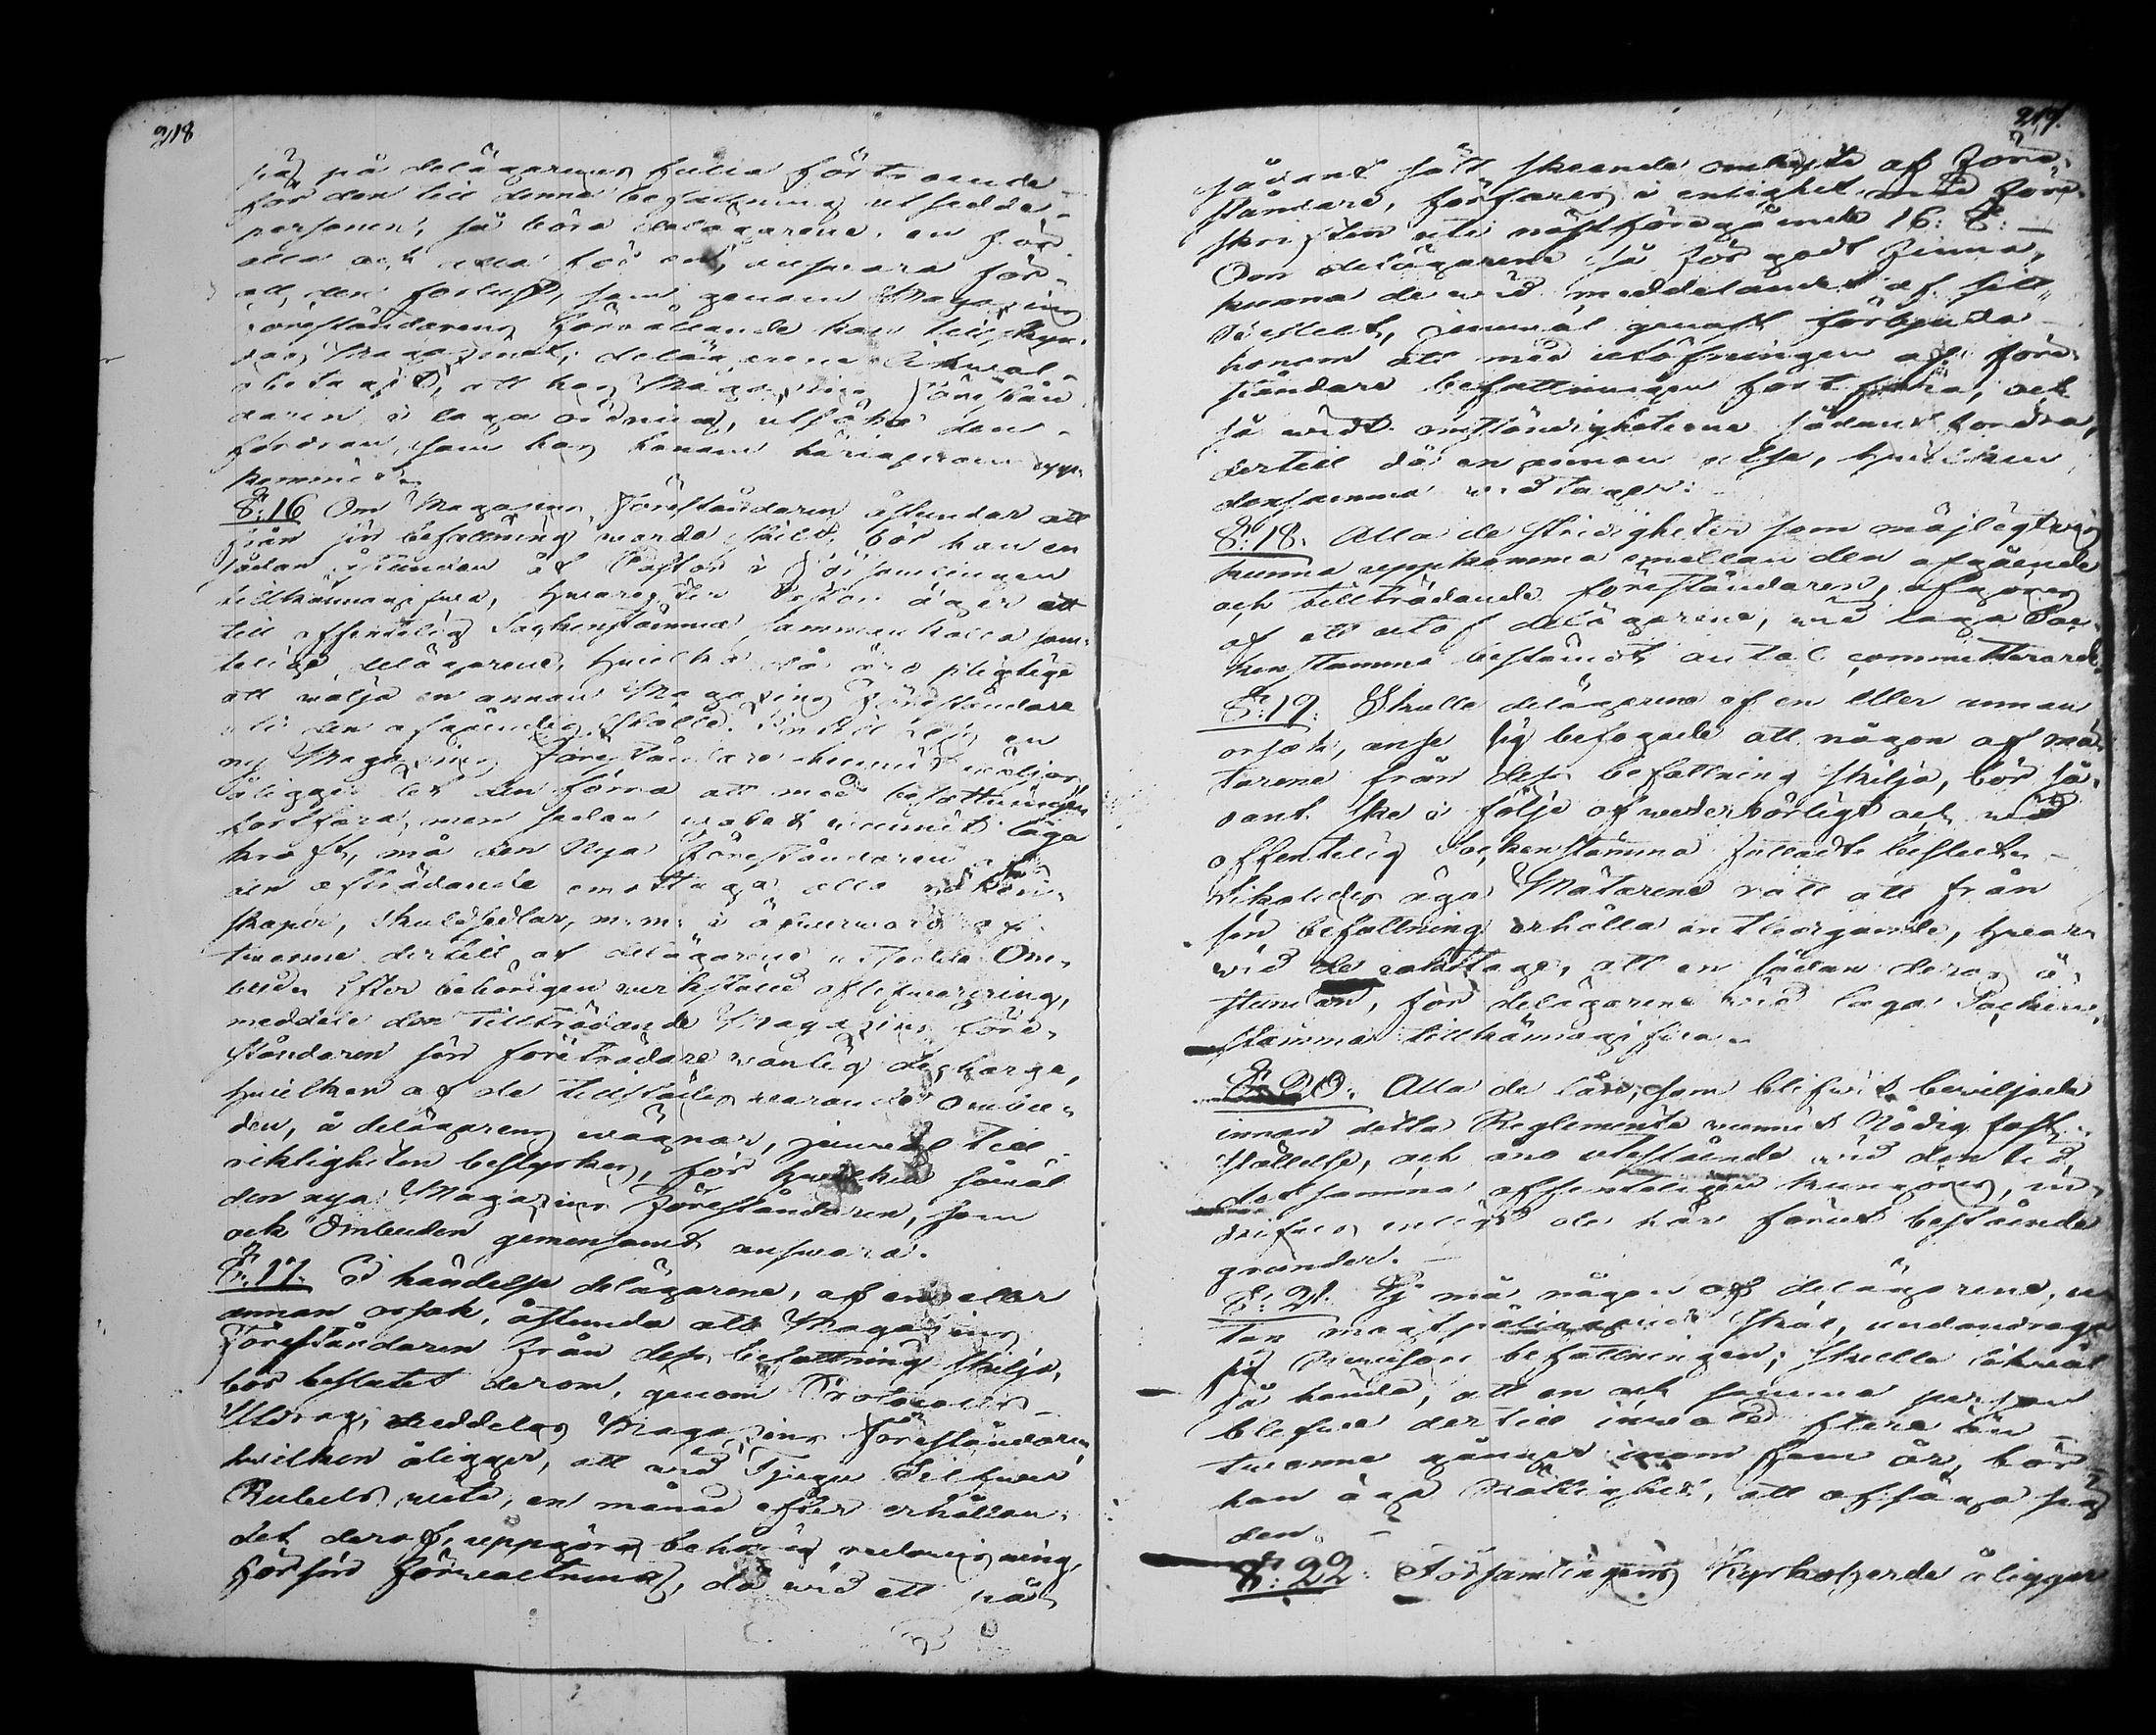 218
på delägarnes fulla förtroende
för den till denna befattning utsedde
personen, så böra delägarene, en för
alla och alla för en, ansvara för
all den förlust, som genom Magazins
Föreståndarens förvållande kan tillskyn-
das Magazinet; delägarene likväl
obetagit, att hos Magazins Förestån
daren i laga ordning, utsöka den
fordran, som hos honom härigenom upp-
kommit.
§:16 Om Magazins Föreståndaren åstundar att
från sin befattning warda skild, bör han en
sådan åstundan åt Pastor i Församlingen
tillkännagifwa, hwarefter Pastor äger att
till offentelig Sockenstämma sammankalla sam-
telige delägarene, hwilka då äro pligtige
att wälja en annan Magazins Föreståndare
uti den afgåendes ställe. Intill dess en
ny Magazins Föreståndare hunnit wäljas
åligger det den förra att med befattningen
fortfara, men sedan walet wunnit laga
kraft, må den nya Föreståndaren af
den afträdande emottaga alla räken-
skaper, skuldsedlar, m.m. i öfwerwaro af
twenne dertill af delägarene utsedde Om-
bud. Efter behörigen werkställd aflefwerering,
meddele den tillträdande Magazins Före-
ståndaren sin företrädare wanlig decharge,
hwilken af de tillstädes warande Ombu-
den, å delägarens wägnar, jemwäl till
riktigheten bestyrkes, för hwilket såwäl
den nya Magazins Föreståndaren, som
och Ombuden gemensamt answara.
§:17. I händelse delägarene, af en eller
annan orsak, åstunda att Magazins
Föreståndaren från dess befattning skilja,
bör beslutet derom, genom Protocolls
Utdrag, meddelas Magazins Föreståndaren,
hwilken åligger, att wid Tjugu Silfwer
Rubels wite, en månad efter erhållan-
det deraf, uppgöra behörig redowisning,
för sin förwaltning, då wid ett på
217.
sådant sätt skeende ombyte af Före-
ståndare, förfares i enlighet med före-
skriften uti nästföregående 16. §.
Om delägarene så för godt finna,
kunna de wid meddelandet af sitt
beslut, jemwäl genast förbjuda
honom att med utöfningen af före-
ståndare befattningen fortfara, och
så widt omständigheterne sådant fordra,
dertill då en annan utse, hwilken
densamma widtager.
§:18. Alla de stridigheter som möjligtwis
kunna uppkomma emellan den afgående
och tillträdande föreståndaren, afgöres
af ett utaf delägarene, wid laga Soc-
kenstämma bestämdt antal committerade.
§:19. Skulle delägarene af en eller annan
orsak, anse sig befogade att någon af mä-
tarene från dess befattning skilja, bör så-
dant ske i följe af wederbörligt och wid
offentelig Sockenstämma fattadt beslut.
Likaledes äga Mätarene rätt att från
sin befattning erhålla entledigande, hwar-
wid de iakttage, att en sådan deras å-
stundan, för delägarene wid laga Socken-
stämma tillkännagifwa.
§:20. Alla de lån, som blifwit beviljade
innan detta Reglemente wunnit Nådig fast-
ställelse, och äro utestående wid den tid,
detsamma offenteligen kungöres, in-
drifwes enligt de här förut bestående
grunder.
§:21. Ej må någon af delägarene, u-
tan magtpåliggande skäl, undandraga
sig Revisors befattningen; skulle likwäl
så hända, att en och samma person
blefwe dertill inwald flere än
twenne gånger inom fem år, bör
han äga rättighet, att afsäga sig
den.
§:22. Församlingens Kyrkoherde åligger